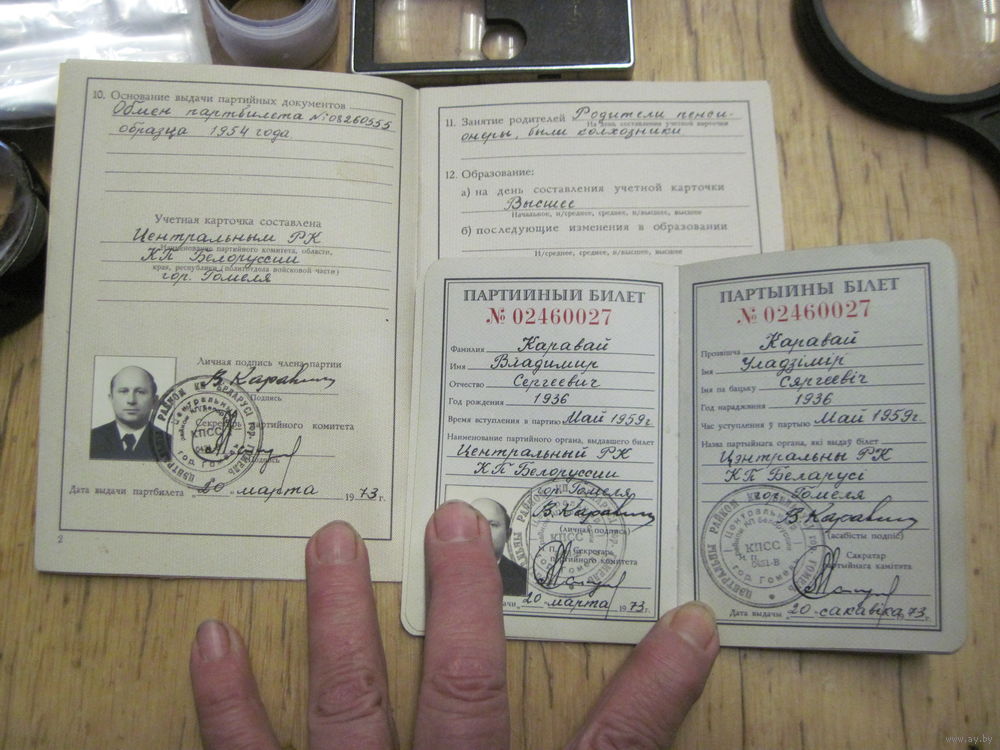 10. Основание выдачи партийных документов
Обмен партбилета №08260555
образца 1954 года
Учетная карточка составлена
Центральным РК
Наименование партийного комитета, области,
КП Белоруссии
края, республики (политотдела войсковой части)
гор. Гомеля
Личная подпись члена партии
В. Каравай
Подпись
Секретарь партийного комитета
Подпись
Дата выдачи партбилета „20“ марта 1973 г.
2
ЦЭНТРАЛЬНЫ РАЙКОМ КП БЕЛАРУСІ
КПСС
11. Занятие родителей Родители пенси-
На день составления учетной карточки
онеры, были колхозники
12. Образование:
а) на день составления учетной карточки
Высшее
Начальное, н/среднее, среднее, н/высшее, высшее
б) последующие изменения в образовании
Н/среднее, среднее, н/высшее, высшее
ПАРТИЙНЫЙ БИЛЕТ
№ 02460027
Фамилия Каравай
Имя Владимир
Отчество Сергеевич
Год рождения 1936
Время вступления в партию Май 1959г.
Наименование партийного органа, выдавшего билет
Центральный РК
КП Белоруссии
гор. Гомеля
В. Каравай
(личная подпись)
М. П. Секретарь
партийного комитета
выдачи „20“ марта 1973 г.
КПСС
ПАРТЫЙНЫ БІЛЕТ
№ 02460027
Прозвішча Каравай
Імя Уладзімір
Імя па бацьку Сяргеевіч
Год нараджэння 1936
Час уступлення ў партыю Май 1959г.
Назва партыйнага органа, які выдаў білет
Цэнтральны РК
КП Беларусі
гор. Гомеля
В. Каравай
(асабісты подпіс)
Сакратар
партыйнага камітэта
Дата выдачы „20“ сакавіка 1973 г.
КПСС
www.ay.by